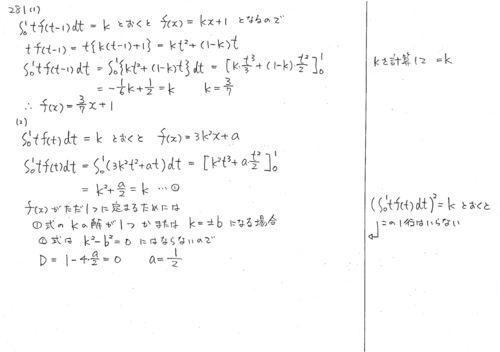 281(1)
∫₀¹tf(t-1)dt=k とおくと f(x)=kx+1 となるので
tf(t-1)=t{k(t-1)+1}=kt²+(1-k)t
∫₀¹tf(t-1)dt=∫₀¹{kt²+(1-k)t}dt=[k・t³/3+(1-k)・t²/2]₀¹
=-1/6k+1/2=k k=3/7
∴ f(x)=3/7x+1
(2)
∫₀¹tf(t)dt=k とおくと f(x)=3k²x+a
∫₀¹tf(t)dt=∫₀¹(3k²t²+at)dt=[k²t³+a・t²/2]₀¹
=k²+a/2=k …①
f(x)がただ1つに定まるためには
①式のkの解が1つ かまたは k=±bになる場合
①式は k²-b²=0 にはならないので
D=1-4・a/2=0 a=1/2
kを計算して =k
(∫₀¹tf(t)dt)²=k とおくと
この1行はいらない